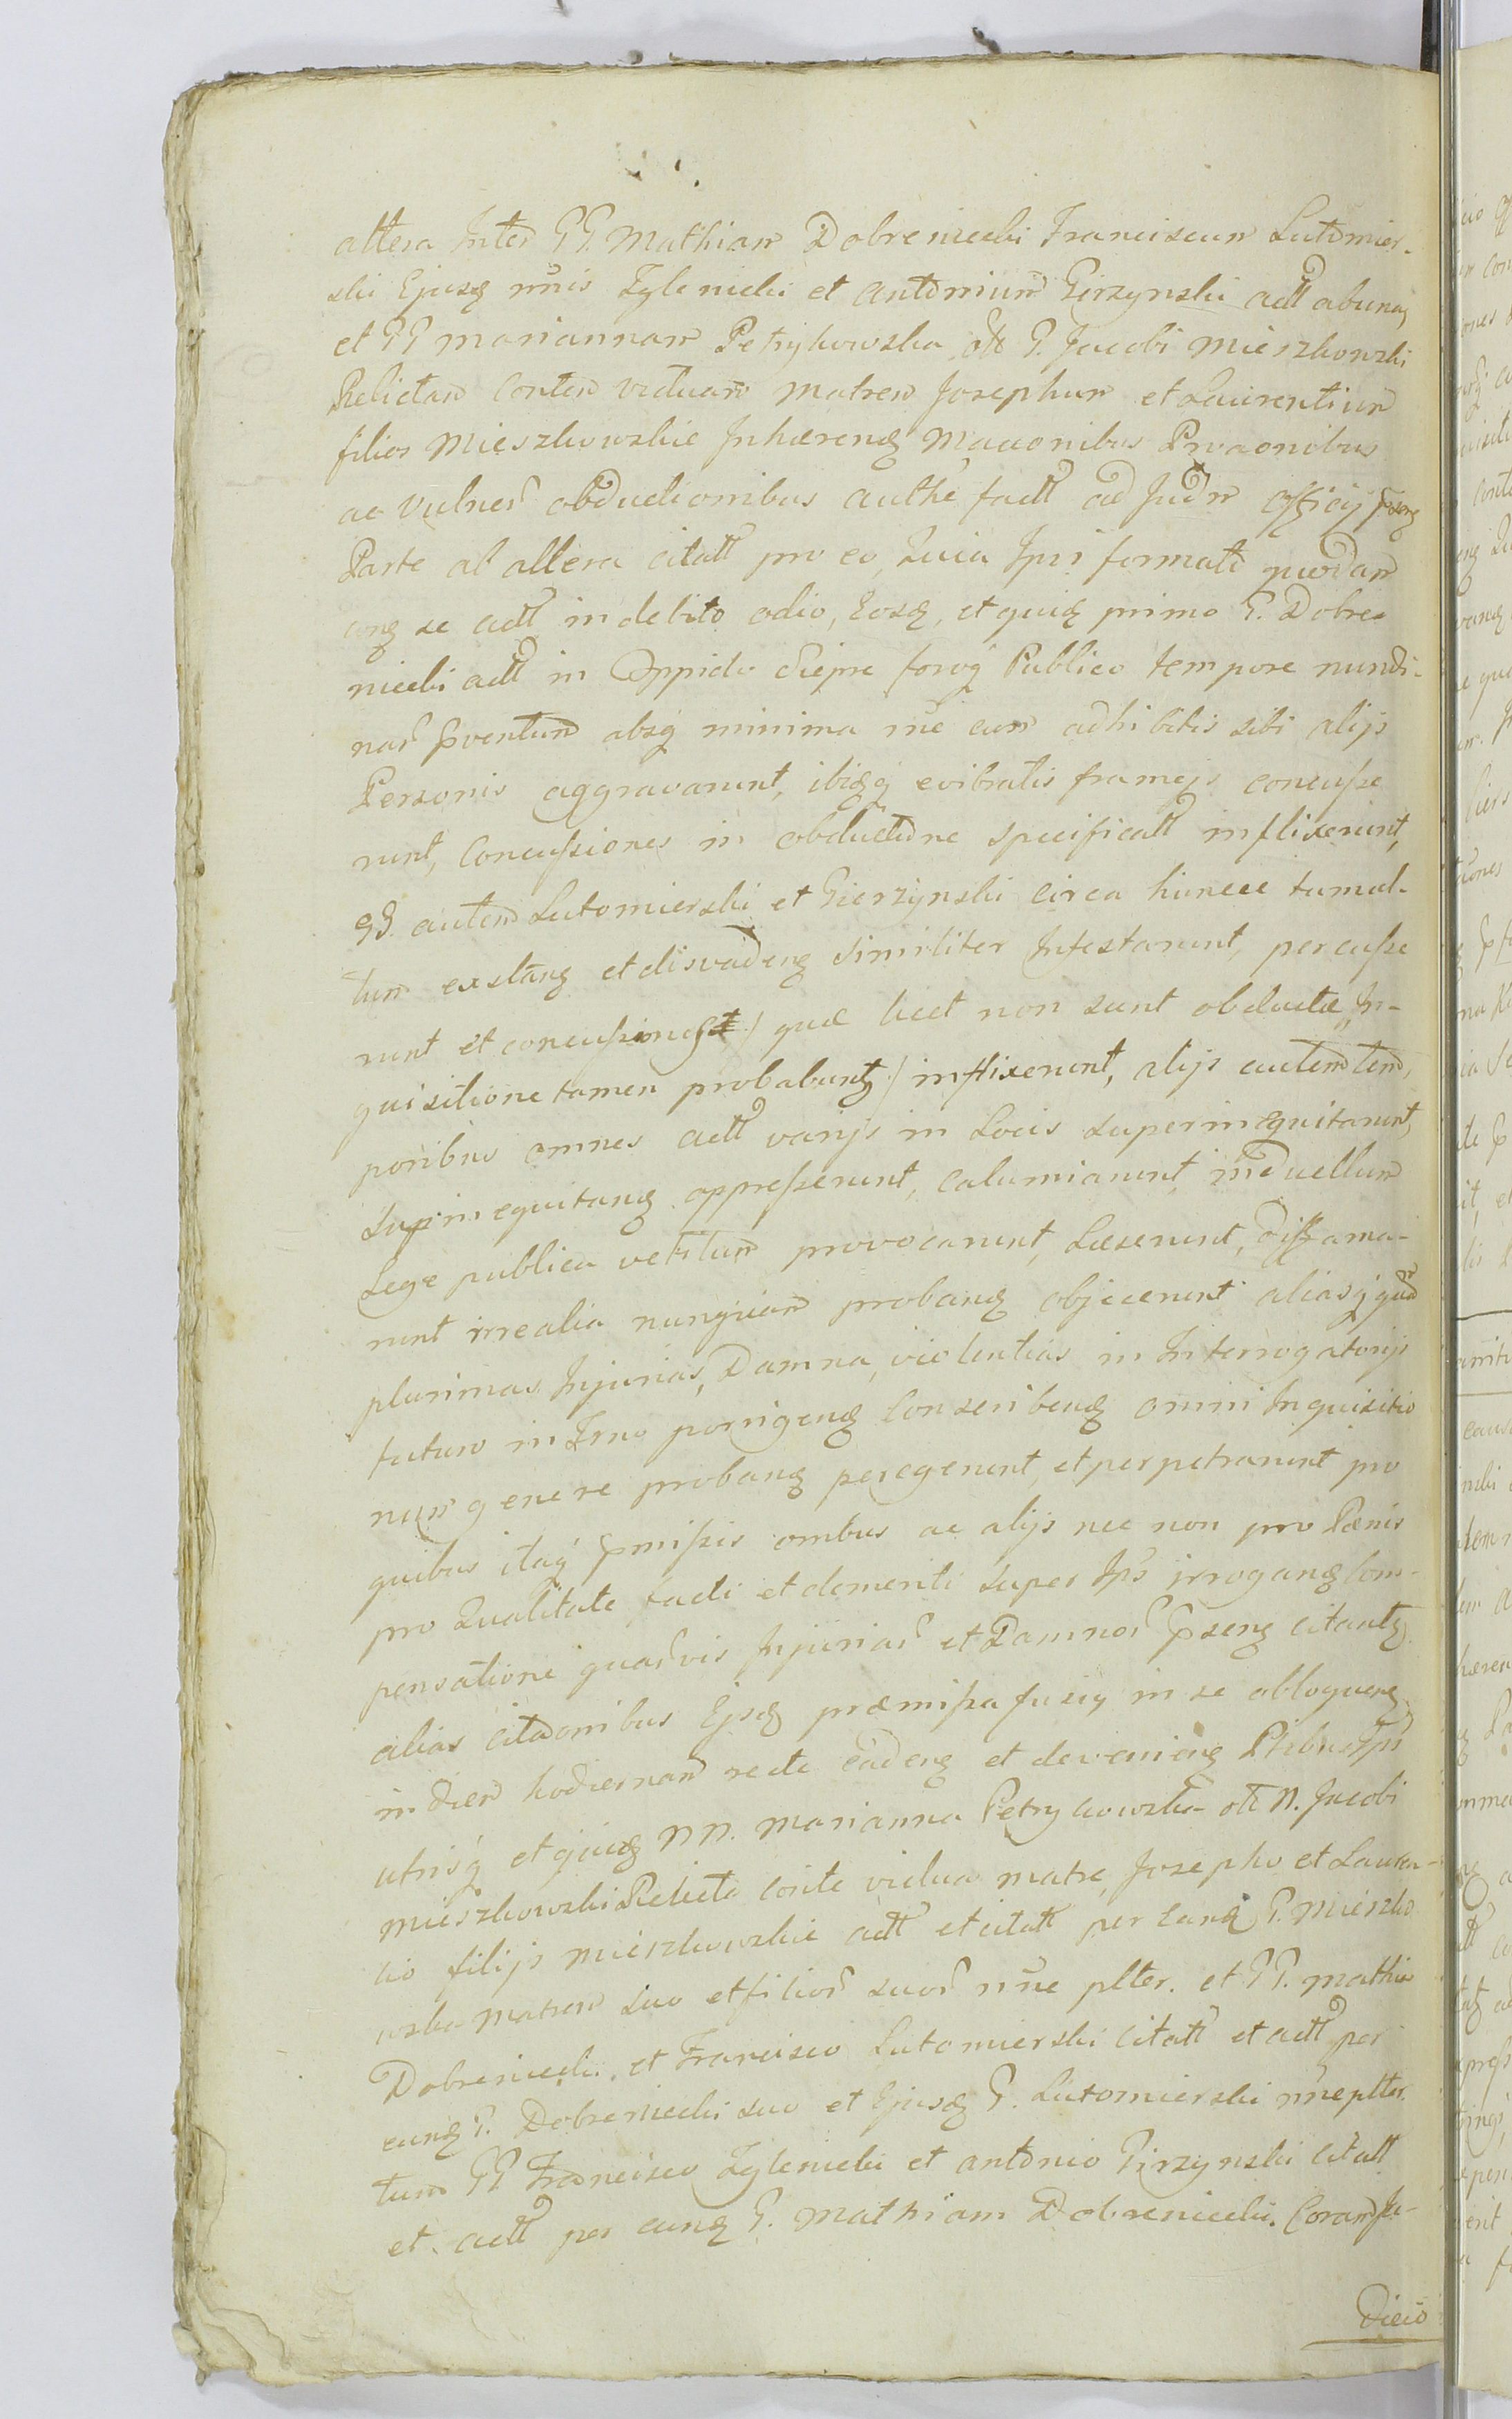 altera Inter GG. Mathiam Dobreniecki Franciscum Lutomier-
ski Ejusq nris Zyleniecki et Antonium Girzynski actt ab una
et GG Mariannam Petrykowska olt G. Jacobi Mieszkowski
Relictam Conten viduam matrem Josephum et Laurentium
filios Mieszkowskie Inhæreng Maãonibus Proãonibus
ac vulner obductionibus authe factt ad Judm Officij
Parte ab altera citatt pro eo, Quia Ipsi formato quodam
conq se actt indebito odio, Eosq, et quiq primo G. Dobre-
niecki actt in Oppido Siepre foroq Publico tempore nundi-
nar pventum absq minima rñe eum adhibitis sibi alijs
Personis aggravarunt, ibiqq evibratis frameis concusse
runt, Concussiones in obductione specificatt inflixerunt,
GG. autem Lutomierski et Gierzynski circa huncce tumul-
tum exstanq et disvadenq similiter Infestarunt, percusse
runt et concussiones / quæ licet non sunt obductæ, In-
quisitione tamen probabuntq / inflixerunt, alijs autem tem,
poribus omnes actt varijs in Locis superinequitarunt,
Supinequitanq oppresserunt, calumiarunt, in duellum
Lege publica vetitum provocarunt, Læserunt, diffama-
runt irrealia nunquam probanq objecerunt aliasq quã
plurimas Injurias, Damna, violentias in Interrogatorijs
futuro in Trno porrigenq Conscribenq omni Inquisitio
num genere probanq peregerunt, et perpetrarunt pro
quibus itaq pmissis ombus ac alijs nec non pro Pænis
pro Qualitate facti et demeriti super Ips irroganq Com-
pensatione quarvis Injuriar et Damnor pseng citantq
alias citãonibus Ejsq præmissa fusiq in se obloquenq
in diem hodiernam recte cadenq et devenienq Ptibus Ips
utrisq et quiq NN. Marianna Petrykowska olt N. Jacobi
Mieszkowski Relicta conte vidua matre, Josepho et Lauren-
cio filijs Mieszkowskie actt et citatt per eanq G. Mieszko
wska matrem suo et filior suor nñe plter. et GG. Mathia
Dobreniecki et Francisco Lutomierski citatt et actt per
eunq G. Dobreniecki suo et Ejusq G. Lutomierski nñe plter.
tum GG Francisco Zyleniecki et Antonio Girzynski citatt
et actt per eunq G. Mathiam Dobreniecki. Coram Ju-
dicio